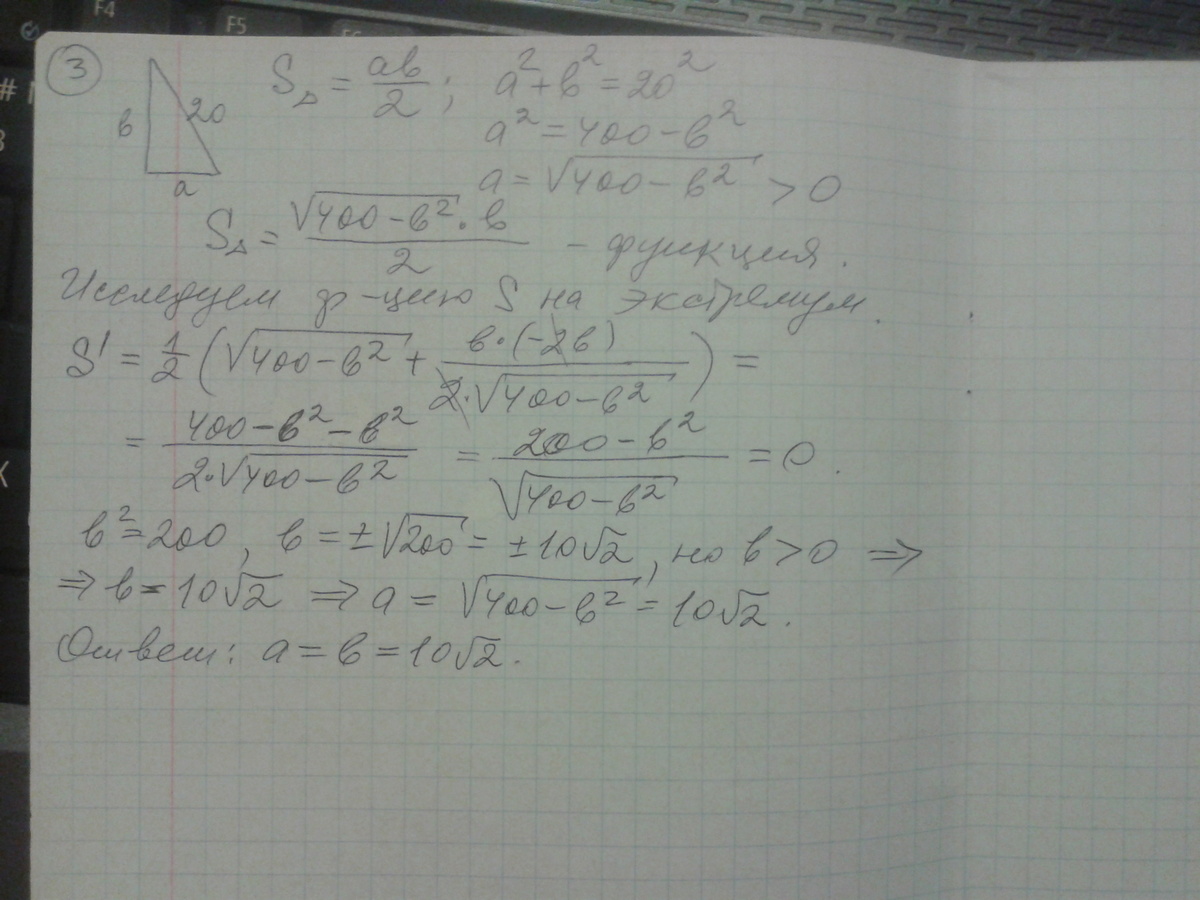 F4
F5
3
S△ = ab/2 ; a² + b² = 20²
b 20
a² = 400 - b²
a
a = √(400 - b²) > 0
S△ = (√(400 - b²) · b)/2 - функция.
Исследуем ф-цию S на экстремум.
S' = 1/2 (√(400 - b²) + (b·(-2b))/(2·√(400 - b²))) =
= (400 - b² - b²)/(2·√(400 - b²)) = (200 - b²)/√(400 - b²) = 0.
b² = 200, b = ±√200 = ±10√2, но b > 0 ⇒
⇒ b = 10√2 ⇒ a = √(400 - b²) = 10√2.
Ответ: a = b = 10√2.